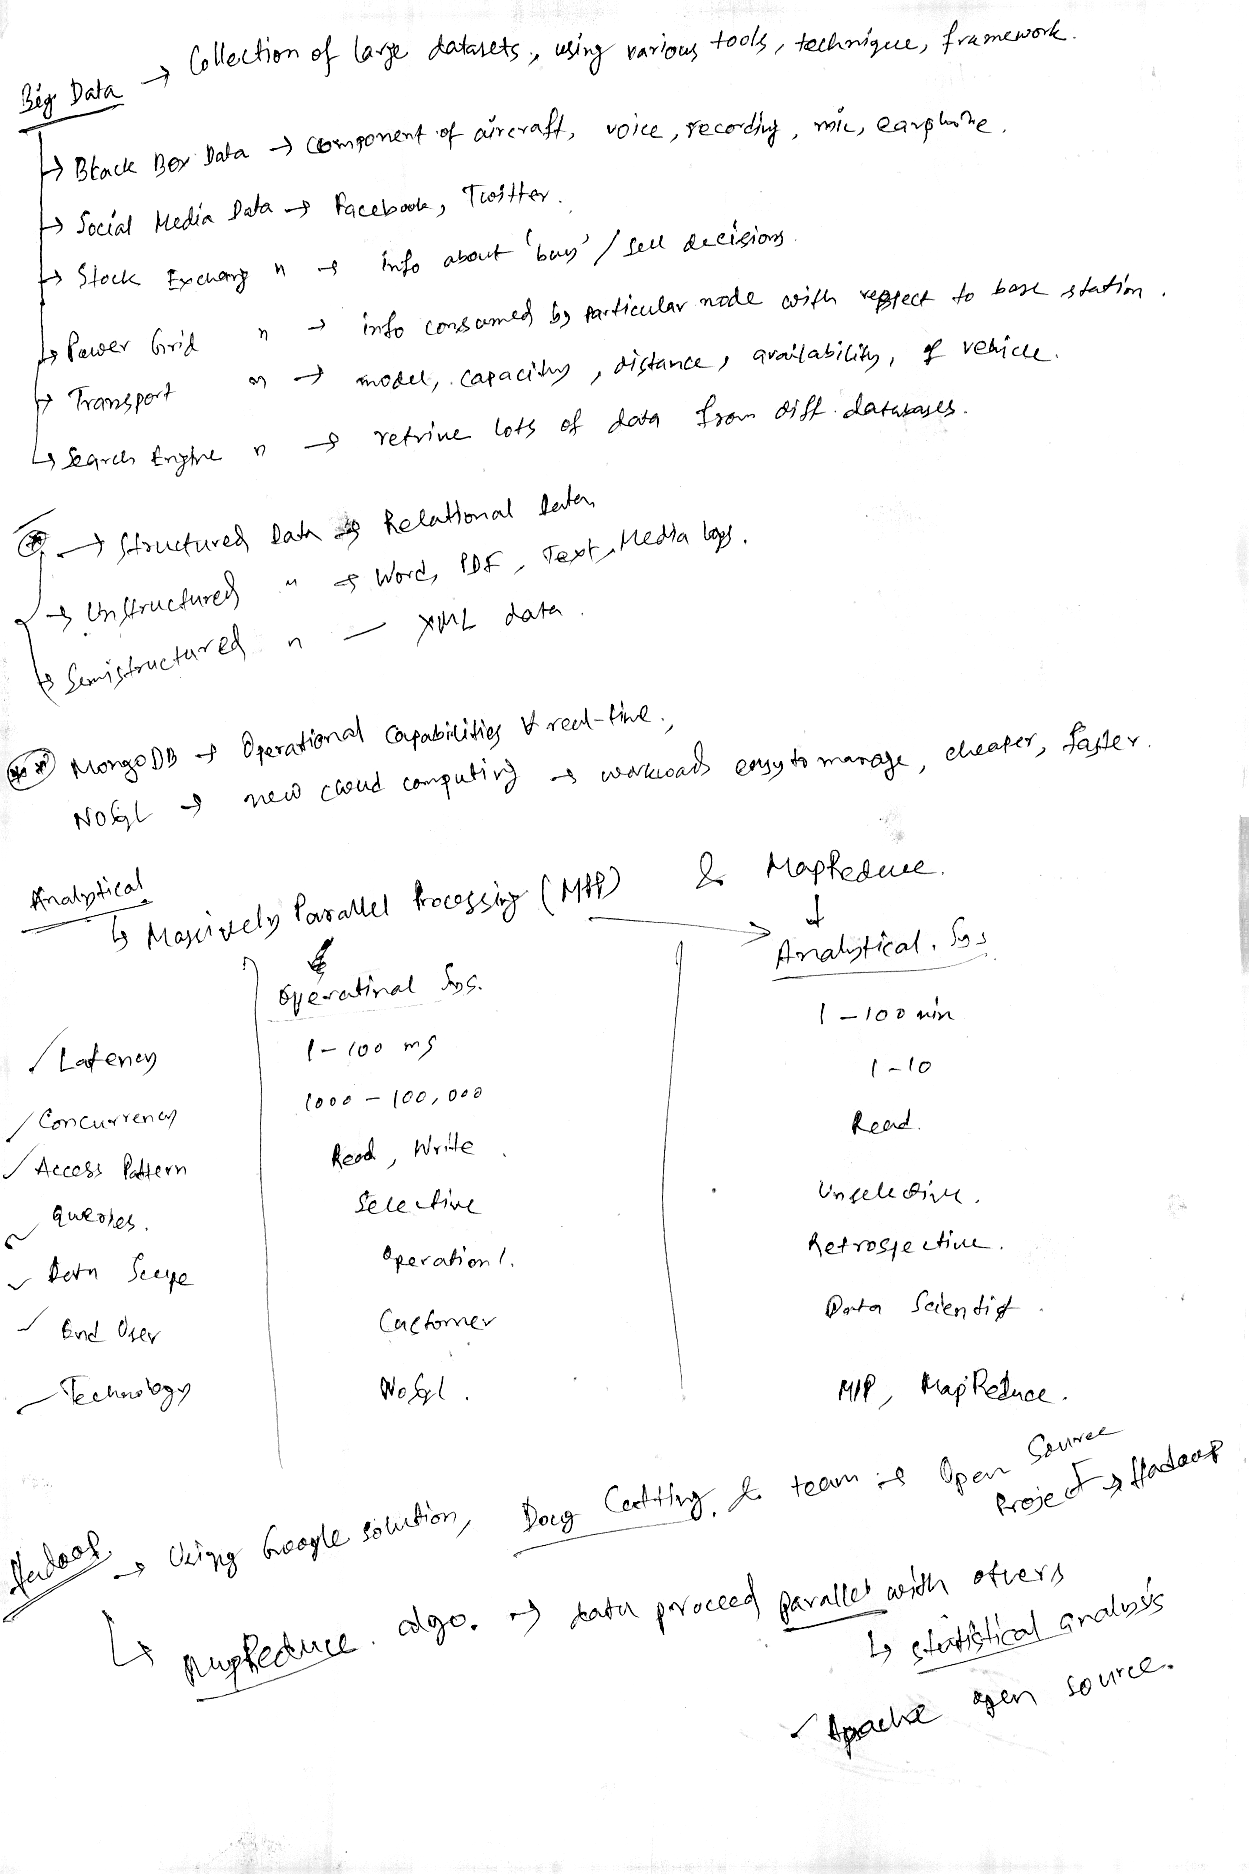 Big Data → Collection of large datasets, using various tools, technique, framework.
→ Black Box Data → component of aircraft, voice, recording, mic, earphone.
→ Social Media Data → Facebook, Twitter.
→ Stock Exchang " → info about 'buy' / sell decisions.
→ Power Grid " → info consumed by particular node with respect to base station.
→ Transport " → model, capacity, distance, availability, of vehicle.
→ Search Engine " → retrive lots of data from diff. databases.
* → Structured Data → Relational data
→ Unstructured " → Word, PDF, Text, Media logs.
→ Semistructured " — XML data.
** MongoDB → Operational Capabilities & real-time.,
NoSql → new cloud computing → workloads easy to manage, cheaper, faster.
Analytical
↳ Massively Parallel Processing (MPP) & MapReduce.
Operatinal Sys. Analytical. Sys
Latency 1-100 ms 1-100 min
Concurrency 1000 - 100,000 1-10
Access Pattern Read, Write Read.
Queries. Selective Unselective.
Data Scope Operational. Retrospective.
End User Customer Data Scientist.
Technology NoSql. MPP, MapReduce.
Hadoop → Using Google solution, Doug Cutting & team → Open Source Project → Hadoop
↳ MapReduce. algo. → data proceed parallel with others
↳ statistical analysis
✓ Apache open source.